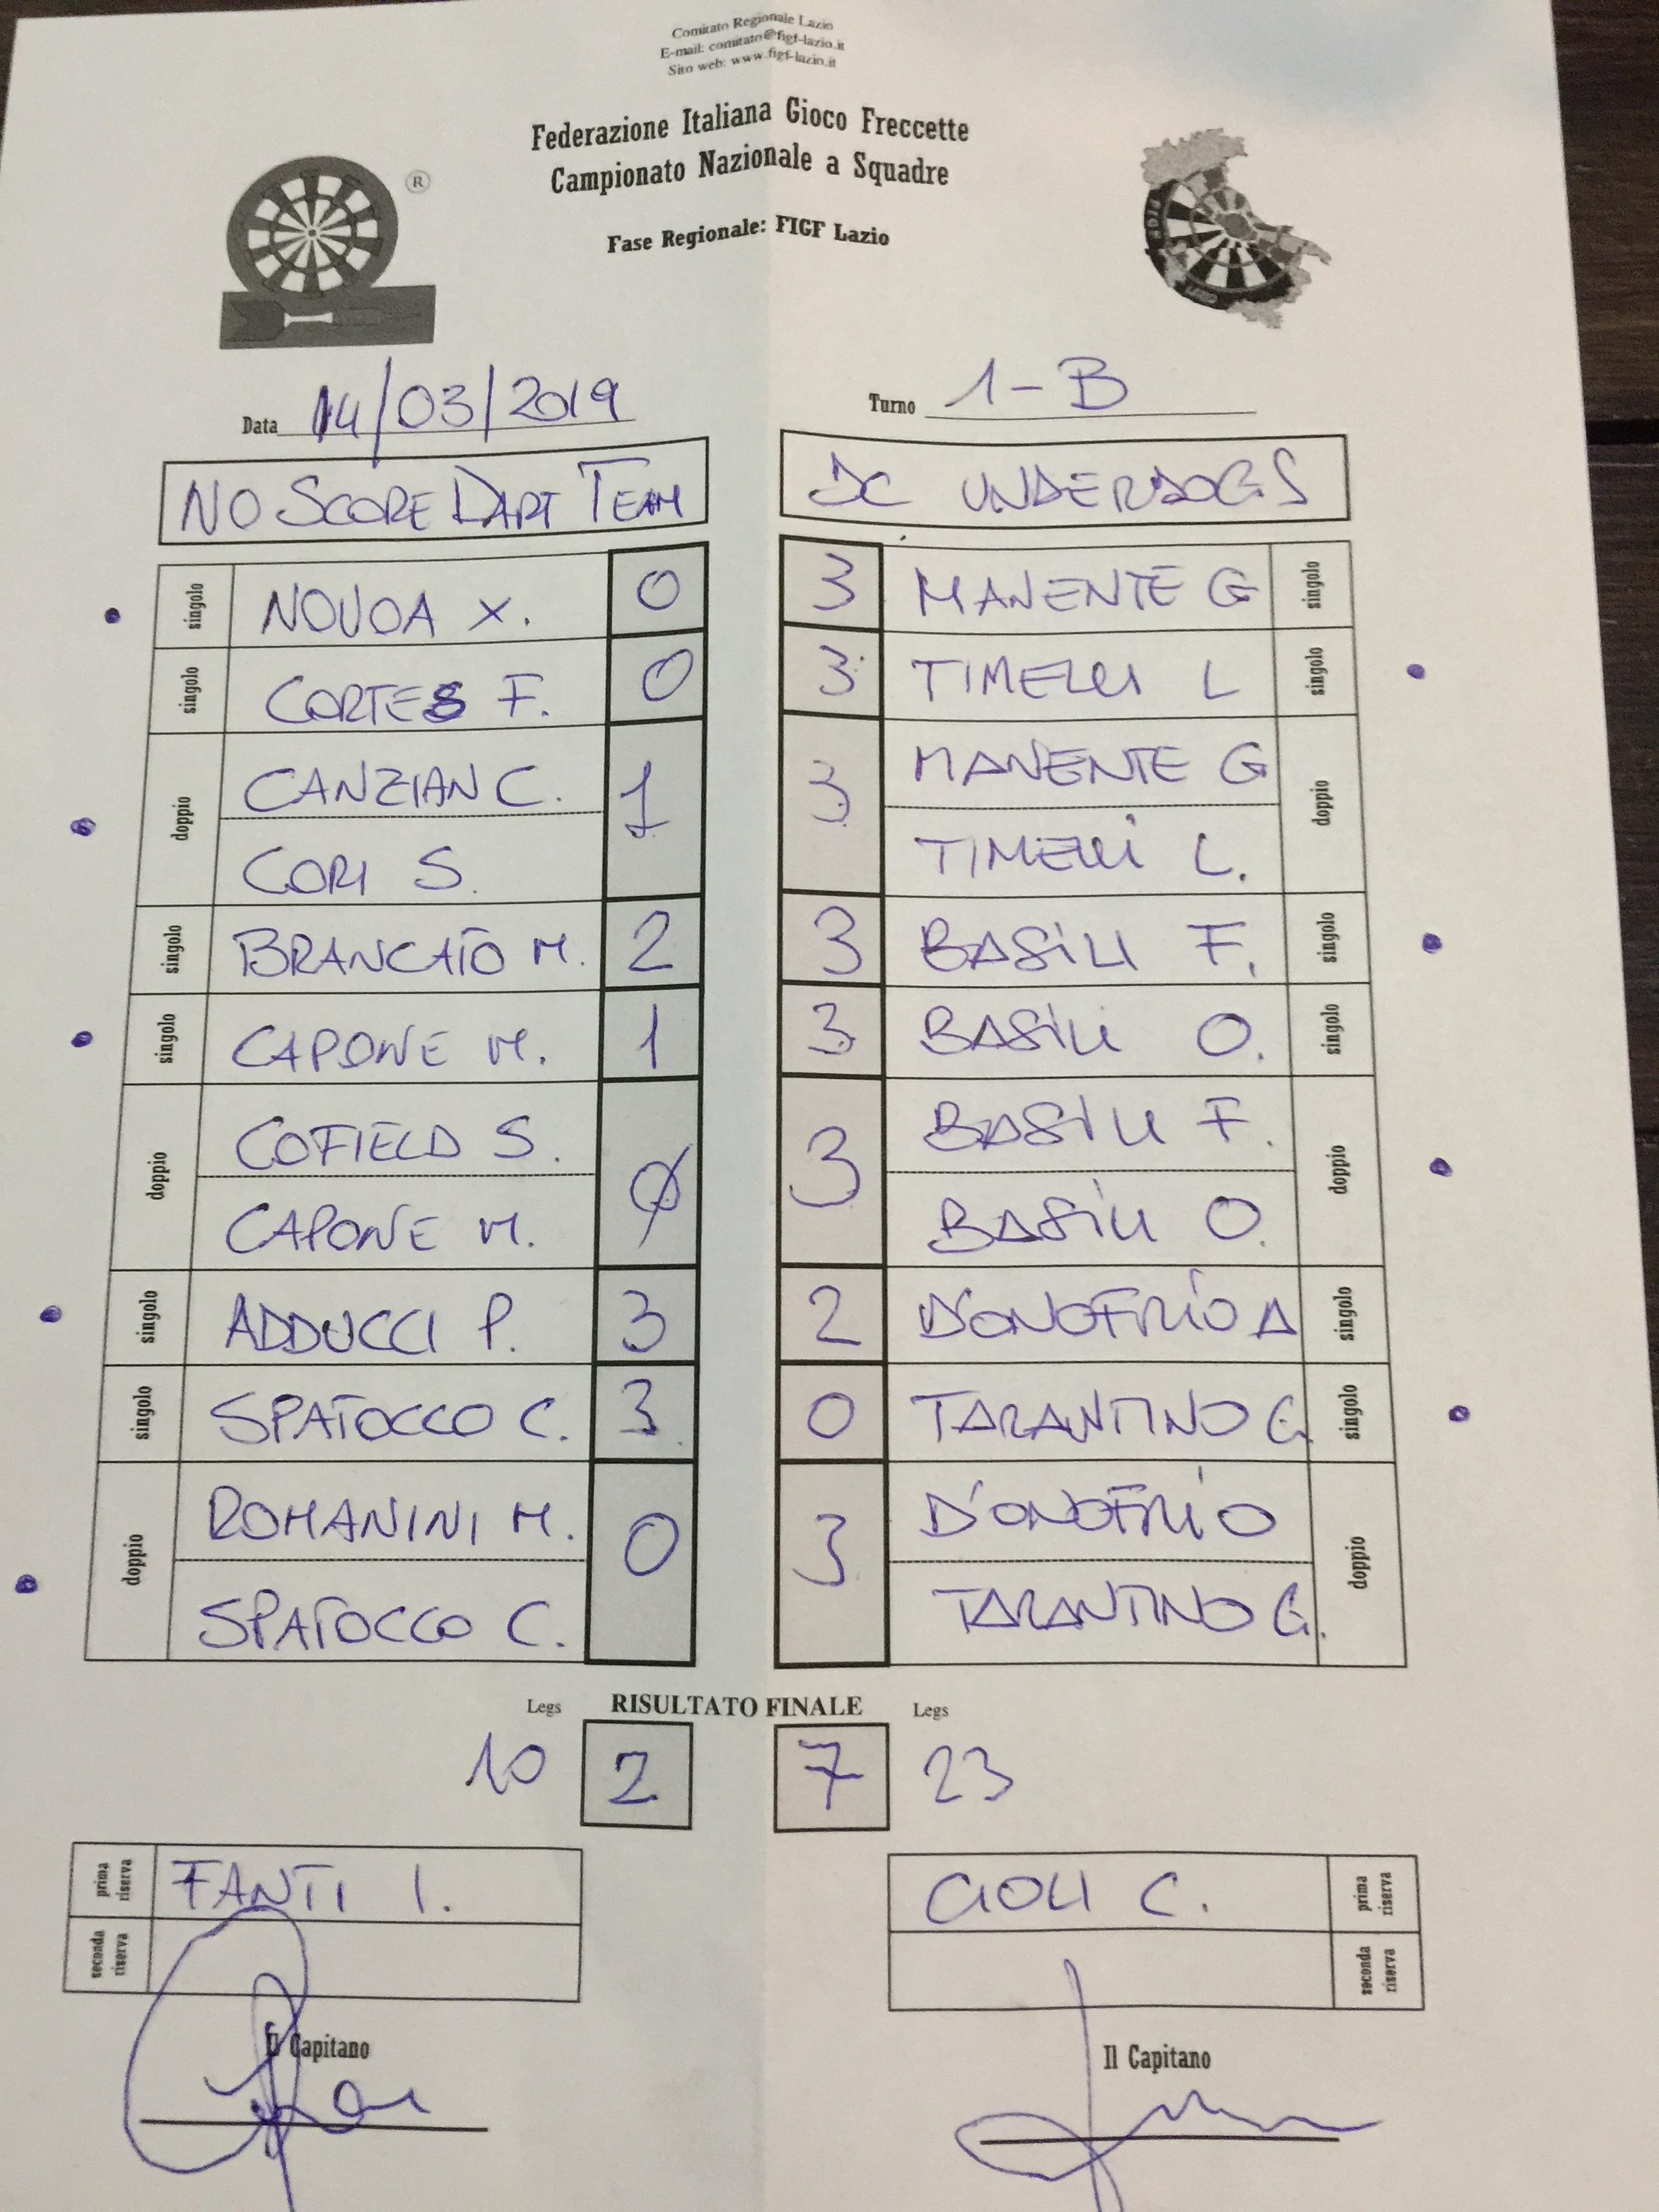 Comitato Regionale Lazio
E-mail: comitato@figf-lazio.it
Sito web: www.figf-lazio.it
Federazione Italiana Gioco Freccette
Campionato Nazionale a Squadre
Fase Regionale: FIGF Lazio
®
Data 14/03/2019 Turno 1-B
NO SCORE DART TEAM DC UNDERDOGS
singolo NOVOA X. 0 3 MANENTE G singolo
singolo CORTES F. 0 3 TIMELLI L singolo
doppio CANZIAN C. 1 3 MANENTE G doppio
CORI S. TIMELLI L.
singolo BRANCATO M. 2 3 BASILI F. singolo
singolo CAPONE M. 1 3 BASILI O. singolo
doppio COFIELD S. 0 3 BASILI F. doppio
CAPONE M. BASILI O.
singolo ADDUCCI P. 3 2 D'ONOFRIO A singolo
singolo SPATOCCO C. 3 0 TARANTINO G. singolo
doppio ROMANINI M. 0 3 D'ONOFRIO doppio
SPATOCCO C. TARANTINO G.
Legs RISULTATO FINALE Legs
10 2 7 23
prima riserva FANTI I. CIOLI C. prima riserva
seconda riserva seconda riserva
Il Capitano Il Capitano